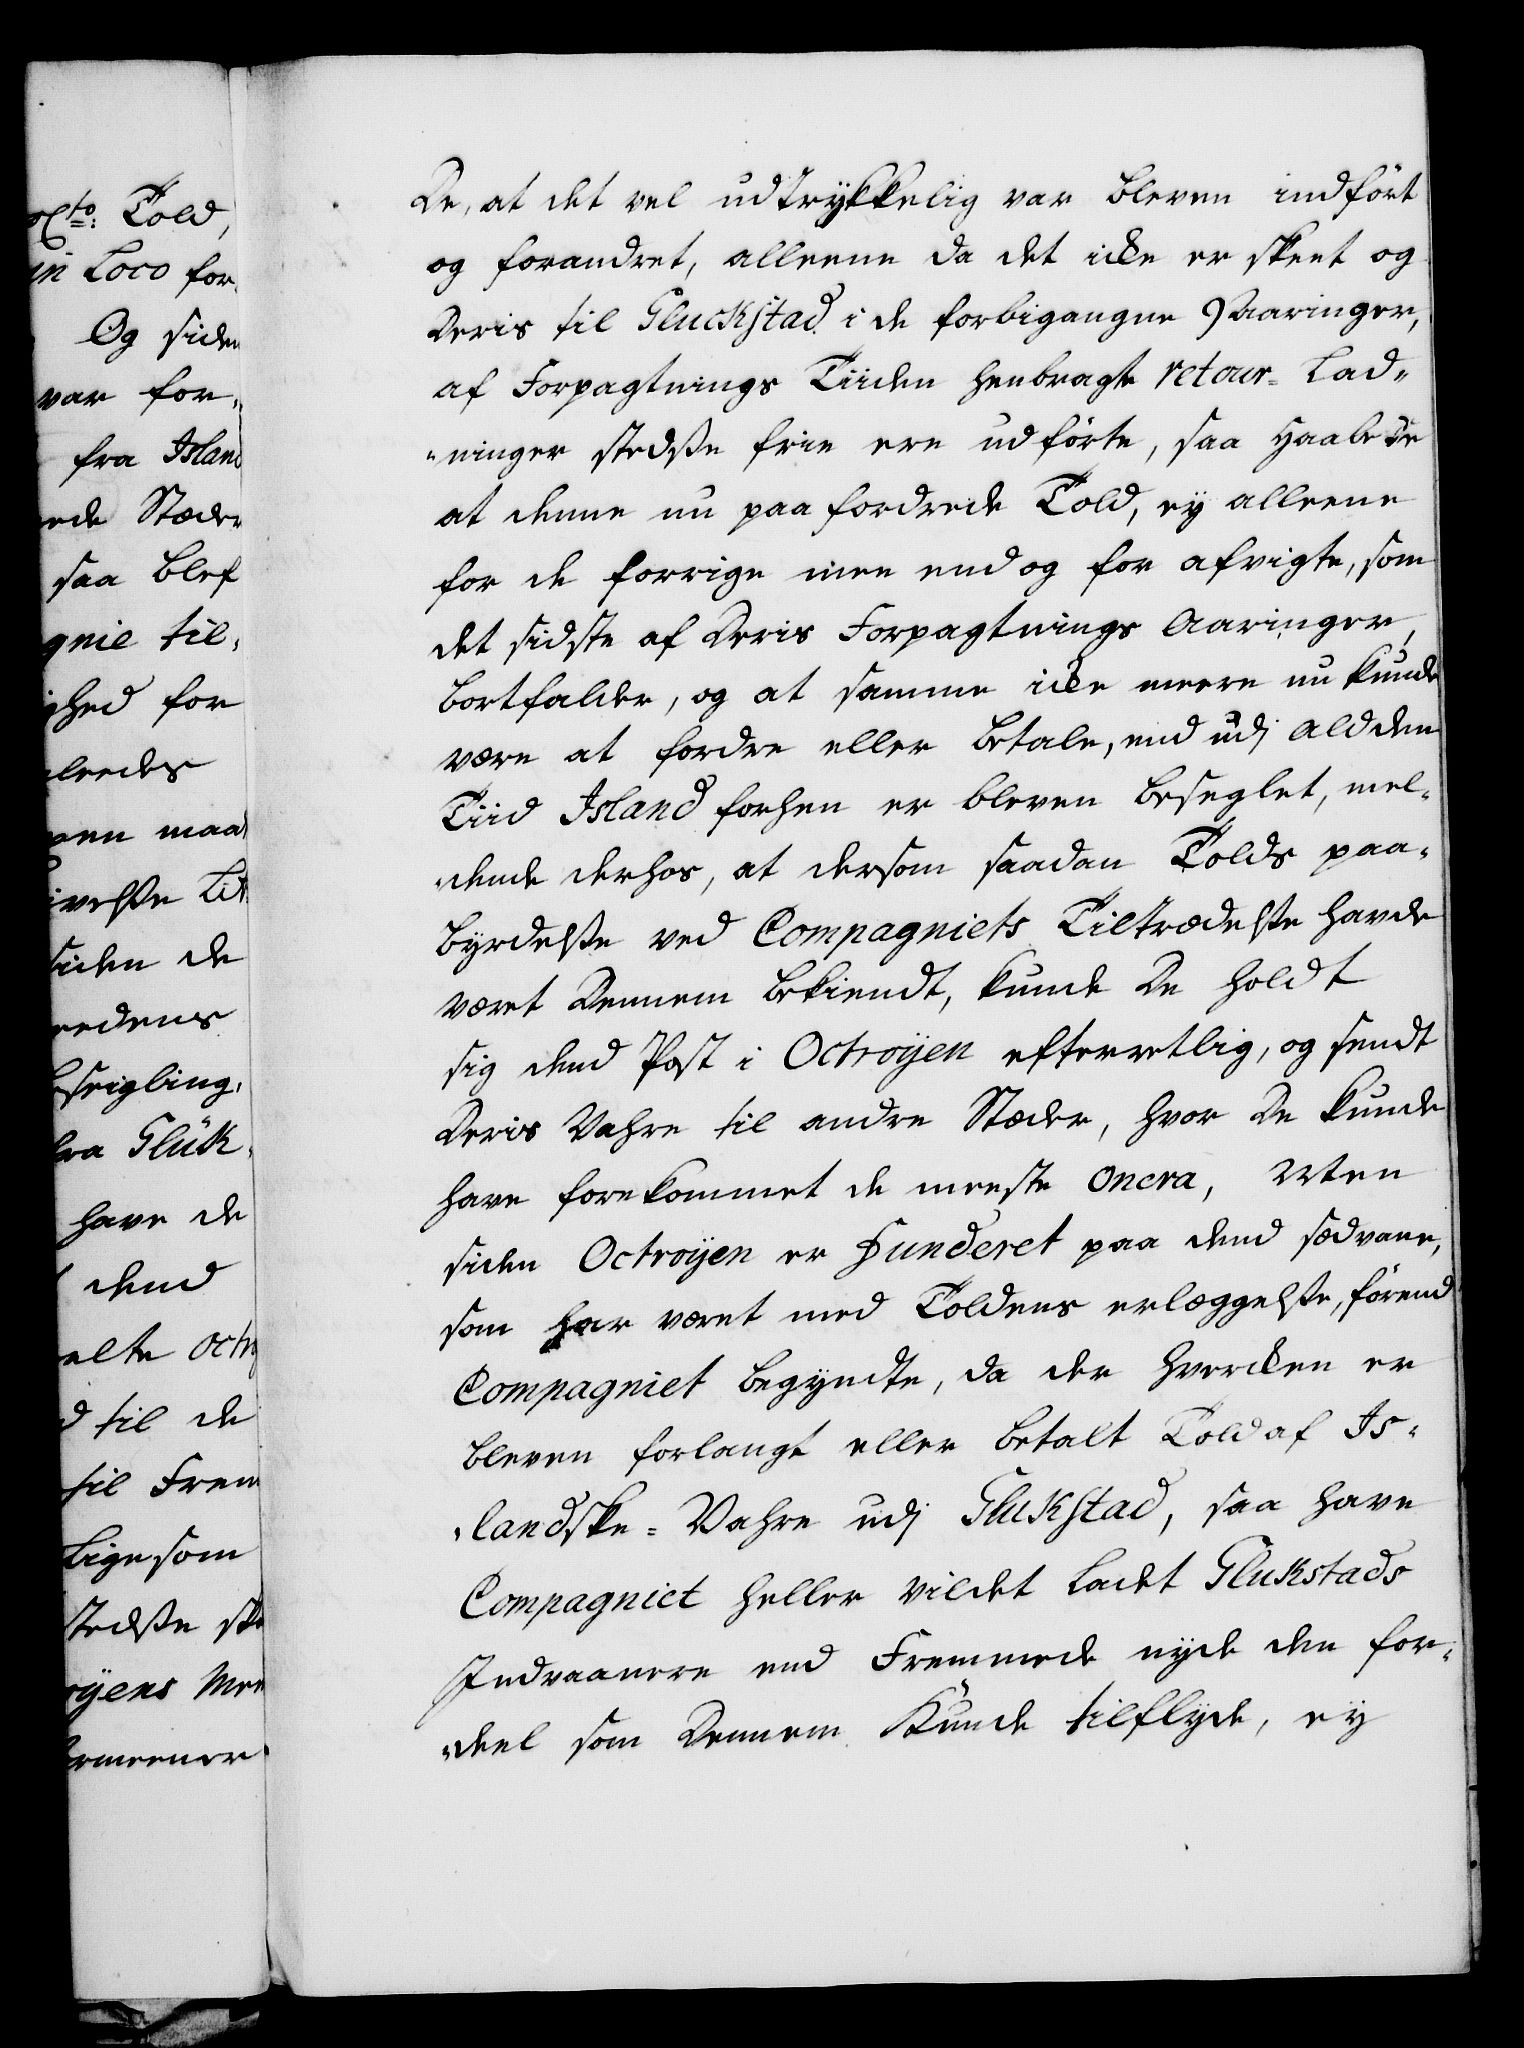 oCto: Told,
in Loco for,
Og siden
var for,
fra Island
ede Stæder
saa blef
gnie til,
ghed for
leedes
en maa
ivelsse Lit
siden de
eedens
seigling,
fra Glük,
have de
dend
alte octr
d til de
til Frem
Ligesom
stedsse ske
oyens Mee
rmeener
De, at det vel udtrÿkkelig var bleven indført
og forandret, alleene da det icke er skeet og
Deris til Gluckstad i de forbigangne 9 Aaringer,
af Forpagtnings Tiiden henbragte retour= Lad„
„ninger stedsse frie ere udførte, saa haabede
at denne nu paa fordrede Told, ey alleene
for de forrige men endog for afvigte, som
det sidste af Deris Forpagtnings Aaringer,
bortfalder, og at samme icke meere nu kunde
være at fordre eller betale, end udj ald den
Tiid Island forhen er bleven beseglet, mel„
„dende derhos, at dersom saadan Tolds paa„
byrdelsse ved Compagniets Tiltrædelsse havde
været Dennem bekiendt, kunde De holdt
sig dend Post i Octroyen efterretlig, og sendt
Deris Vahre til andre Stæder, hvor De kunde
have forekommet de meeste onera, Men
siden Octroyen er funderet paa dend sædvane,
som har været med Toldens erlæggelsse, førend
Compagniet begyndte, da der hvercken er
bleven forlangt eller betalt Told af Is„
„landske= Vahre udj Glukstad, saa have
Compagniet heller vildet ladet Glukstads
Indvaanere end Fremmede nyde den for„
„deel som Dennem kunde tilflyde, ey